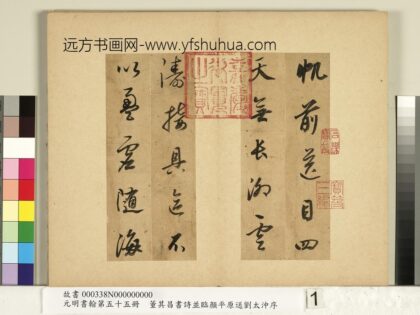 远方书画网-www.yfshuhua.com
帆前送目四
天無長湖雲
濤接具區不
以盈虛隨海
嘉慶御覽之寶
寶笈三編
故書 000338N000000000
元明書翰第五十五冊 董其昌書詩並臨顏平原送劉太沖序
1